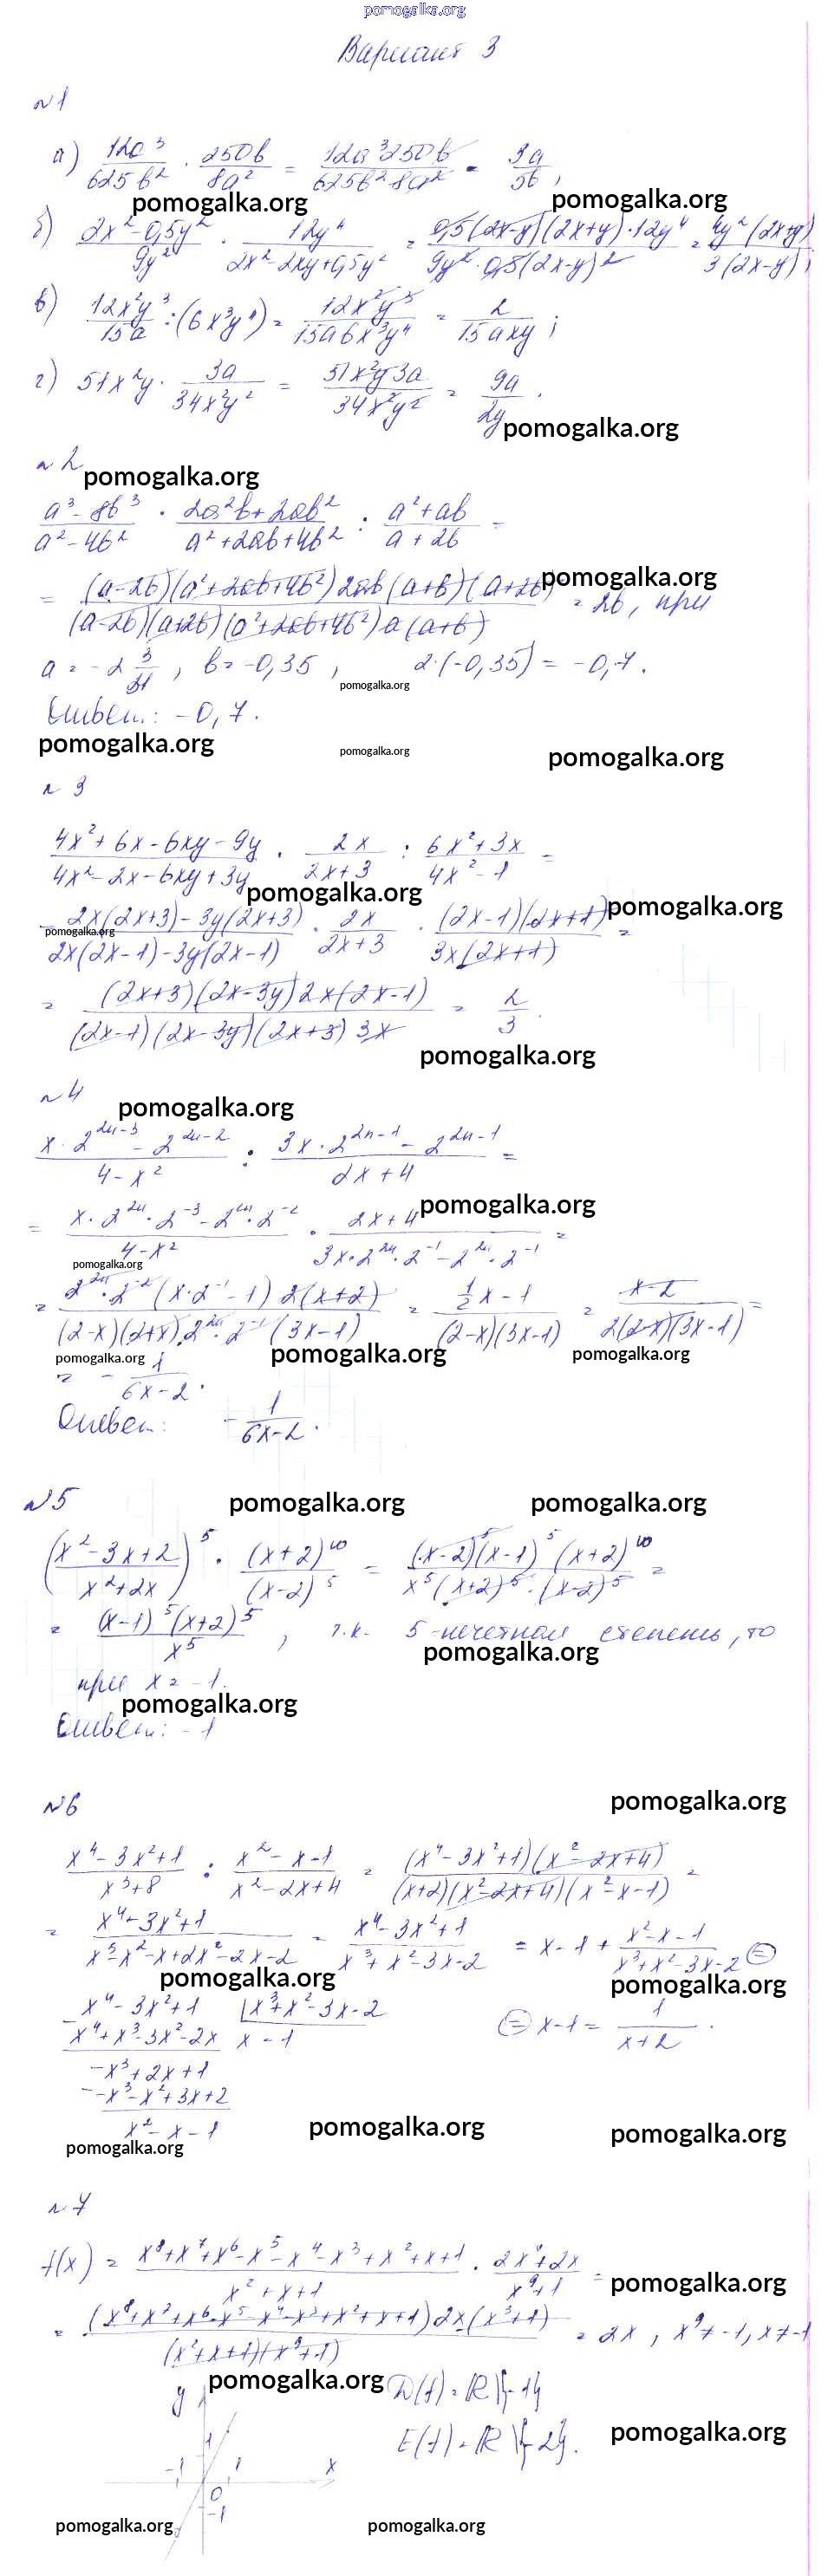 pomogalka.org
Вариант 3
№1
а) 12a³/625b² · 250b/8a² = 12a³250b/625b²8a² = 3a/5b,
pomogalka.org pomogalka.org
б) 2x²-0,5y²/9y² · 12y⁴/2x²-2xy+0,5y² = 0,5(2x-y)(2x+y)·12y⁴/9y²·0,5(2x-y)² = 4y²(2x+y)/3(2x-y);
в) 12x²y³/15a : (6x³y⁴) = 12x²y³/15a6x³y⁴ = 2/15axy;
г) 51x²y · 3a/34x²y² = 51x²y3a/34x²y² = 9a/2y.
pomogalka.org
№2
pomogalka.org
a³-8b³/a²-4b² · 2a²b+2ab²/a²+2ab+4b² : a²+ab/a+2b =
pomogalka.org
= (a-2b)(a²+2ab+4b²)2ab(a+b)(a+2b)/(a-2b)(a+2b)(a²+2ab+4b²)a(a+b) = 2b, при
a = -2 3/31, b = -0,35, 2·(-0,35) = -0,7.
pomogalka.org
Ответ: -0,7.
pomogalka.org pomogalka.org pomogalka.org
№3
4x²+6x-6xy-9y/4x²-2x-6xy+3y · 2x/2x+3 : 6x²+3x/4x²-1 =
pomogalka.org pomogalka.org
= 2x(2x+3)-3y(2x+3)/2x(2x-1)-3y(2x-1) · 2x/2x+3 · (2x-1)(2x+1)/3x(2x+1) =
pomogalka.org
= (2x+3)(2x-3y)2x(2x-1)/(2x-1)(2x-3y)(2x+3)3x = 2/3.
pomogalka.org
№4
pomogalka.org
x·2²ⁿ⁻³-2²ⁿ⁻²/4-x² : 3x·2²ⁿ⁻¹-2²ⁿ⁻¹/2x+4 =
pomogalka.org
= x·2²ⁿ·2⁻³-2²ⁿ·2⁻²/4-x² · 2x+4/3x·2²ⁿ·2⁻¹-2²ⁿ·2⁻¹ =
pomogalka.org
= 2²ⁿ·2⁻²(x·2⁻¹-1)2(x+2)/(2-x)(2+x)·2²ⁿ·2⁻¹(3x-1) = ½x-1/(2-x)(3x-1) = x-2/2(2-x)(3x-1) =
pomogalka.org pomogalka.org pomogalka.org
= -1/6x-2.
Ответ: -1/6x-2.
№5
pomogalka.org pomogalka.org
(x²-3x+2/x²+2x)⁵ · (x+2)¹⁰/(x-2)⁵ = (x-2)⁵(x-1)⁵(x+2)¹⁰/x⁵(x+2)⁵·(x-2)⁵ =
= (x-1)⁵(x+2)⁵/x⁵, т.к. 5-нечетной степень, то
pomogalka.org
при x = -1.
pomogalka.org
Ответ: -1
№6
pomogalka.org
x⁴-3x²+1/x³+8 : x²-x-1/x²-2x+4 = (x⁴-3x²+1)(x²-2x+4)/(x+2)(x²-2x+4)(x²-x-1) =
= x⁴-3x²+1/x³-x²-x+2x²-2x-2 = x⁴-3x²+1/x³+x²-3x-2 = x-1+ x²-x-1/x³+x²-3x-2 =
pomogalka.org pomogalka.org
x⁴-3x²+1 x³+x²-3x-2
x⁴+x³-3x²-2x x-1 = x-1 = 1/x+2.
-x³+2x+1
-x³-x²+3x+2
x²-x-1
pomogalka.org pomogalka.org pomogalka.org
№7
f(x) = x⁸+x⁷+x⁶-x⁵-x⁴-x³+x²+x+1/x²+x+1 · 2x⁴+2x/x⁹+1 =
pomogalka.org
= (x⁸+x⁷+x⁶-x⁵-x⁴-x³+x²+x+1)2x(x³+1)/(x²+x+1)(x⁹+1) = 2x, x⁹≠-1, x≠-1
pomogalka.org
y D(f) = R\{-1}
E(f) = R\{-2}.
pomogalka.org
1
-1 1 x
0
-1
pomogalka.org pomogalka.org